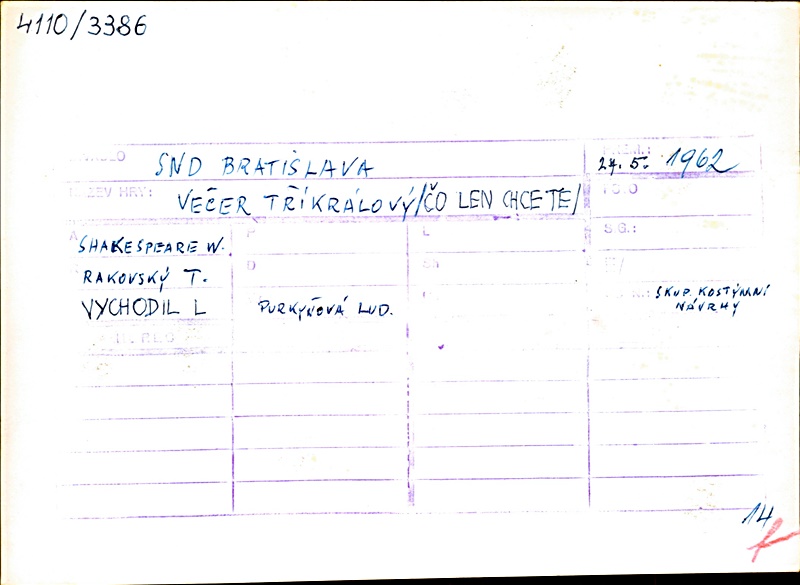 4110/3386
SND BRATISLAVA
24. 5. 1962
NÁZEV HRY: VEČER TŘÍKRÁLOVÝ /ČO LEN CHCETE/
SG.:
SHAKESPEARE W.
RAKOVSKÝ T.
VYCHODIL L PURKYŇOVÁ LUD. SKUP. KOSTÝMNÍ
NÁVRHY
14